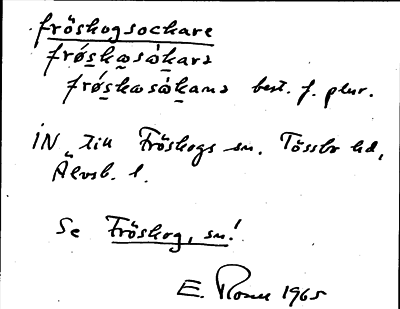 fröskogsockare
frǿskωsòkara
frǿskωsòkana best. f. plur.
IN till Fröskogs sn. Tössbo hd,
Älvsb. l.
Se Fröskog, sn!
E. 1965